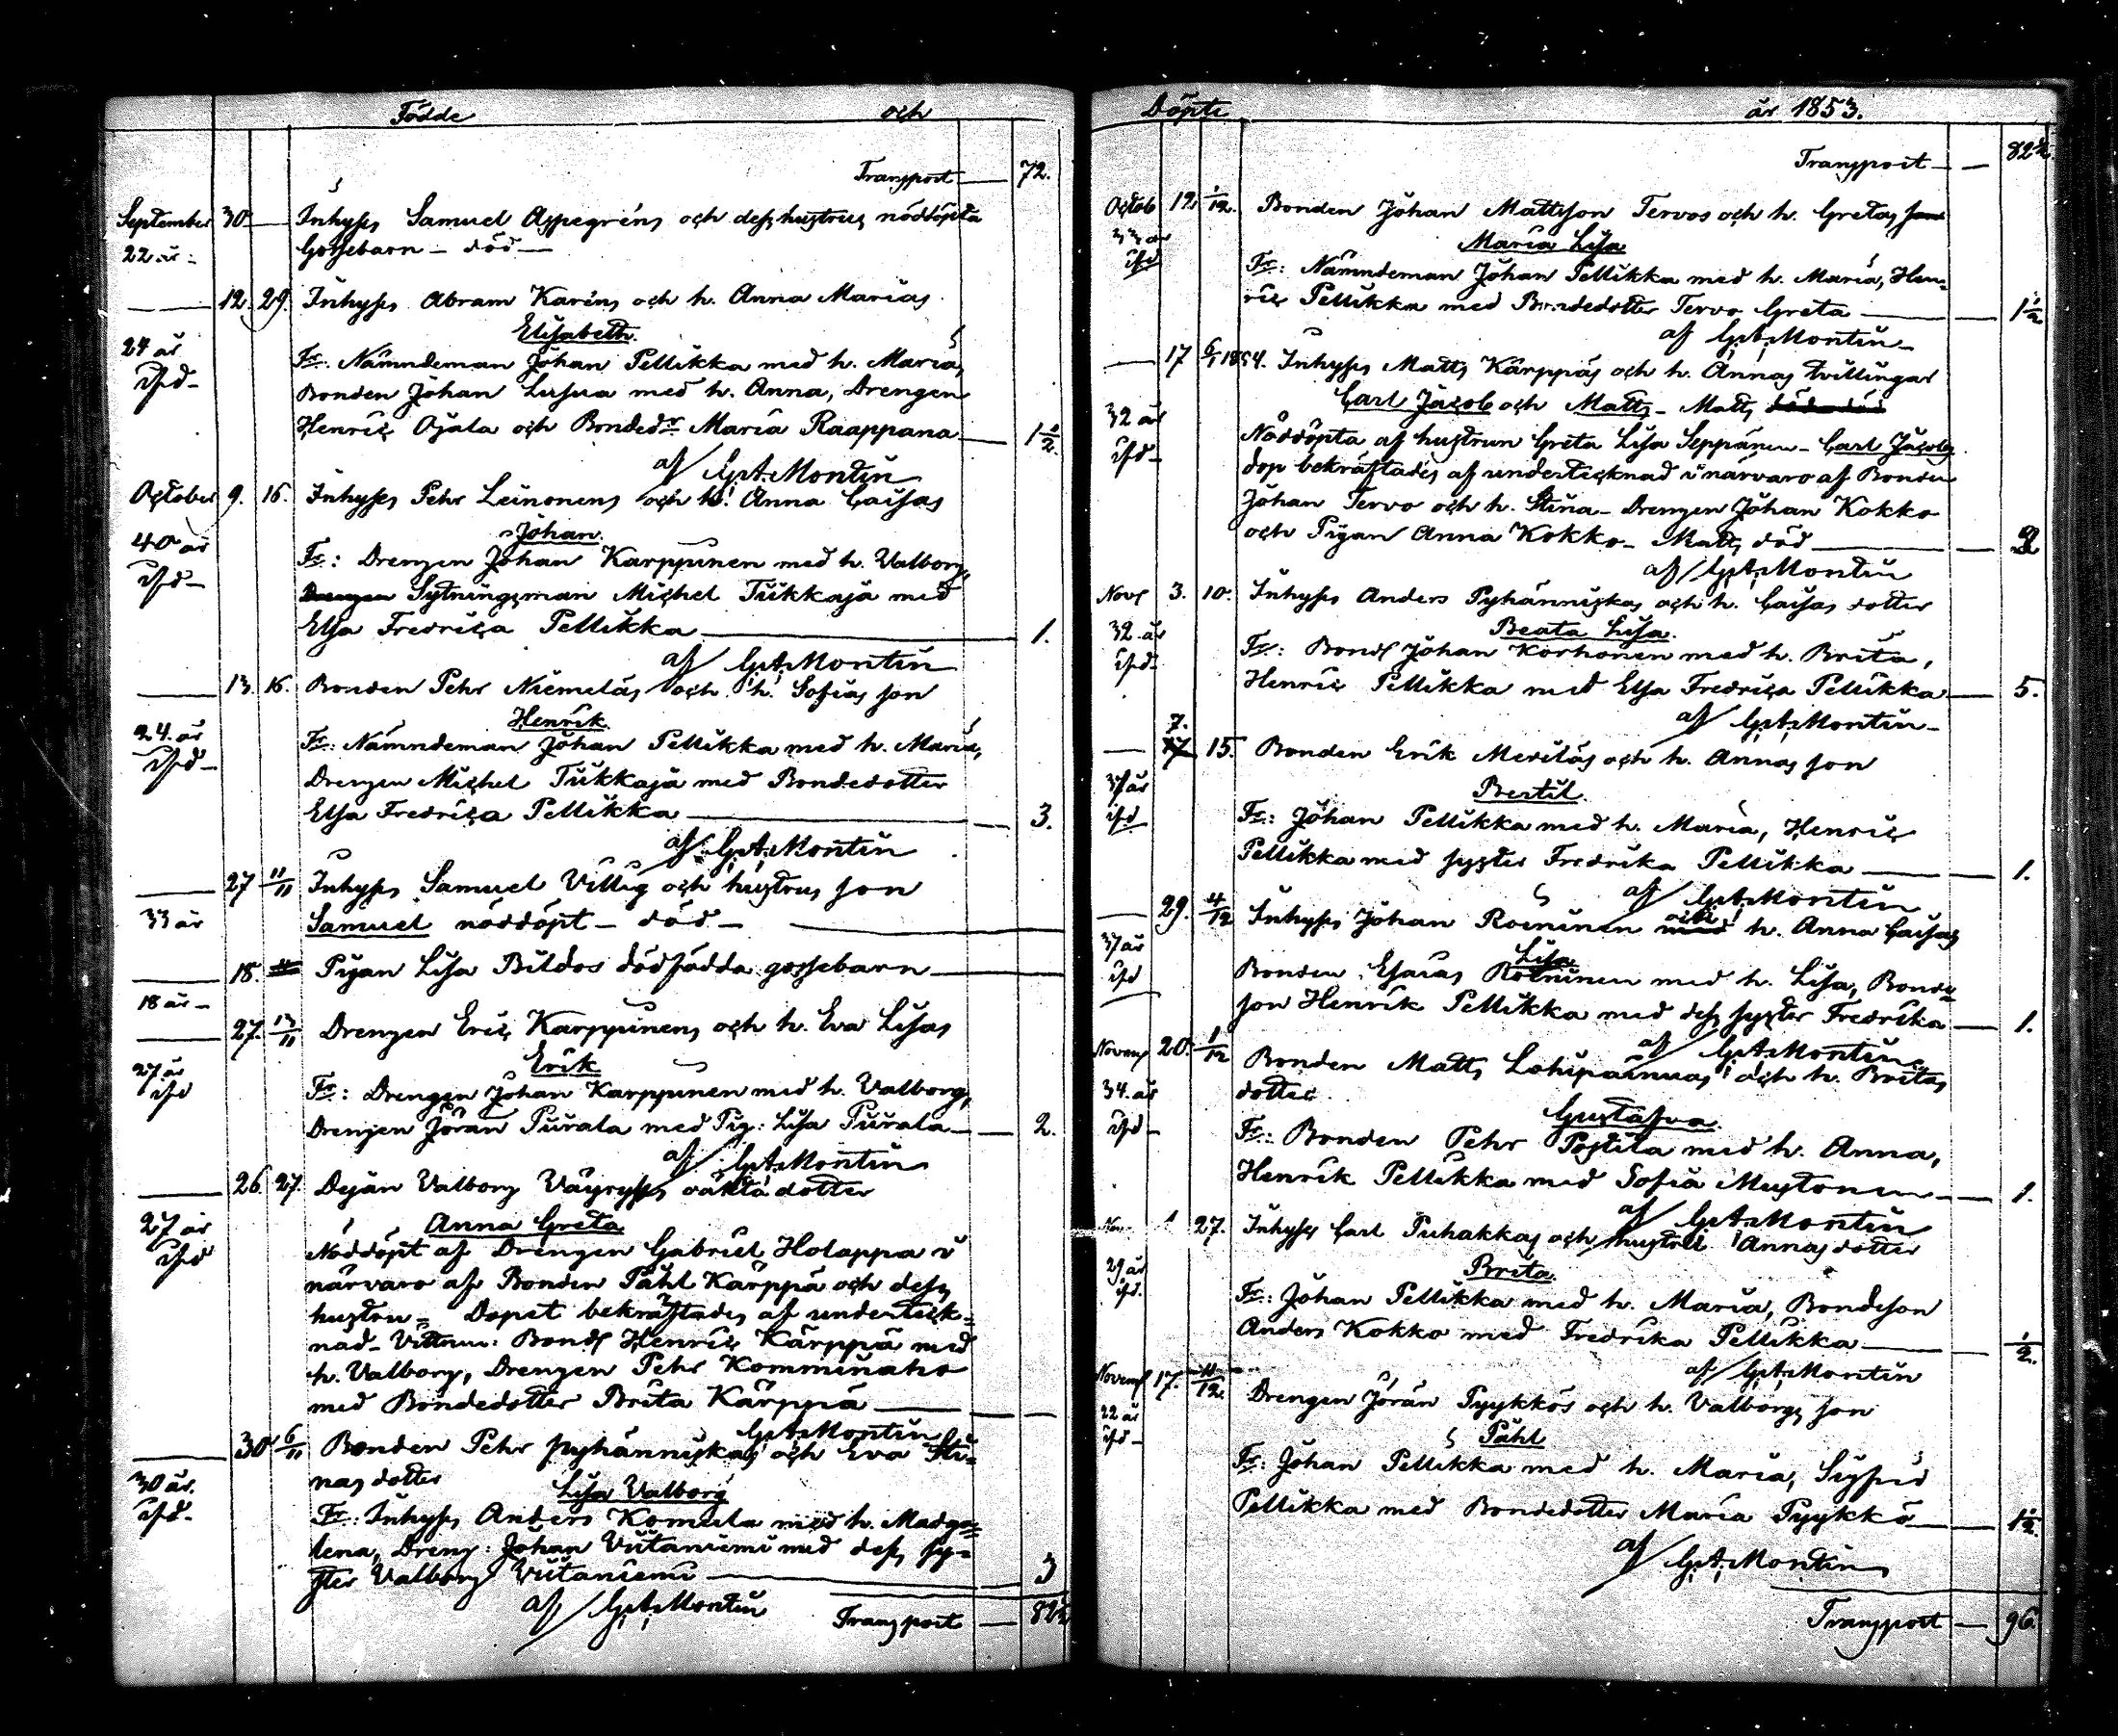 Födde och
Transport — 72.
September 30 — Inhyses Samuel Aspegréns och dess hustrus nöddöpta
22 år — Gossebarn — död —
— 12. 29. Inhyses Abram Karéns och h. Anna Marias
Elisabeth
24 år Fr: Nämndeman Johan Pellikka med h. Maria,
Bonden Johan Lusua med h. Anna, Drengen
Henric Ojala och Bondedr Maria Raappana — 1½
af G. A. Montin
October 9. 16. Inhyses Pehr Leinonens och h. Anna Caisas
Johan.
40 år Fr: Drengen Johan Karppinen med h. Valborg,
Sytningsman Michel Tiikkaja med
Elsa Fredrica Pellikka — 1.
af G. A. Montin
— 13. 16. Bonden Pehr Niemeläs och h. Sofias son
Henrik
24 år Fr: Nämndeman Johan Pellikka med h. Maria,
Drengen Michel Tiikkaja med Bondedotter
Elsa Fredrica Pellikka — 3.
af G. A. Montin
— 27 11/11 Inhyses Samuel Villig och hustrus son
33 år Samuel nöddöpt — död —
— 18. Pigan Lisa Bildos dödfödda gossebarn —
18 år —
— 27. 13/11 Drengen Eric Karppinens och h. Eva Lisas
Erik
27 år Fr: Drengen Johan Karppinen med h. Valborg,
Drengen Jöran Piirala med Pig: Lisa Piirala — 2.
af G. A. Montin
— 26. 27. Valborg Väyryses oäkta dotter
27 år Anna Greta
Nöddöpt af Drengen Gabriel Holappa i
närvaro af Bonden Påhl Kärppä och dess
hustru — Dopet bekräftades af underteck=
nad — Vittnen: Bond Henric Kärppä med
h. Valborg, Drengen Pehr Komminaho
med Bondedotter Brita Kärppä —
G. A. Montin
— 30 6/11 Bonden Pehr Pyhänniskas och Eva Sti=
nas dotter
30 år. Lisa Valborg
Fr: Inhyses Anders Komula med h. Madga=
lena, Dreng: Johan Viitaniemi med dess sy=
ster Valborg Viitaniemi — 3
af G. A. Montin Transport — 82½
Döpte år 1853.
Transport — 82½
Octob 12 1/12. Bonden Johan Mattsson Tervos och h. Gretas
33 år Maria Lisa
Fr: Nämndeman Johan Pellikka med h. Maria, Hen=
ric Pellikka med Bondedotter Tervo Greta — 1½
af G. A. Montin —
— 17 6/1 1854. Inhyses Matts Kärppäs och h. Annas tvillingar
Carl Jacob och Matts — Matts
32 år Nöddöpta af hustrun Greta Lisa Seppänen — Carl Jacobs
dop bekräftades af undertecknad i närvaro af Bonden
Johan Tervo och h. Stina — Drengen Johan Kokko
och Pigan Anna Kokko — Matts död — 2
af G. A. Montin
Nov 3. 10. Inhyses Anders Pyhänniskas och h. Caisas dotter
Beata Lisa.
32 år Fr: Bond Johan Korhonen med h. Brita,
Henric Pellikka med Elsa Fredrica Pellikka — 5.
af G. A. Montin —
7.
— 15. Bonden Erik Meriläs och h. Annas son
Bertil.
37 år Fr: Johan Pellikka med h. Maria, Henric
Pellikka med syster Fredrika Pellikka — 1.
af G. A. Montin
— 29. 4/12 Inhyses Johan Roininen och h. Anna Caisas
37 år Lisa
Bonden Esaias Roininen med h. Lisa, Bonde
son Henrik Pellikka med dess syster Fredrika — 1.
af G. A. Montin
Novemb 20. 1/12 Bonden Matts och h. Britas
34 år dotter.
Gustafva
Fr: Bonden Pehr Postila med h. Anna,
Henrik Pellikka med Sofia Mustonen — 1.
af G. A. Montin
Nov 27. Inhyses Carl Puhakkas och hustru Annas dotter
29 år Brita.
Fr: Johan Pellikka med h. Maria, Bondeson
Anders Kokko med Fredrika Pellikka — ½.
af G. A. Montin
Novemb 17. 11/12 Drengen Jöran Pyykkös och h. Valborgs son
22 år Påhl
Fr: Johan Pellikka med h. Maria, Sigfrid
Pellikka med Bondedotter Maria Pyykkö — 1½.
af G. A. Montin
Transport — 96.